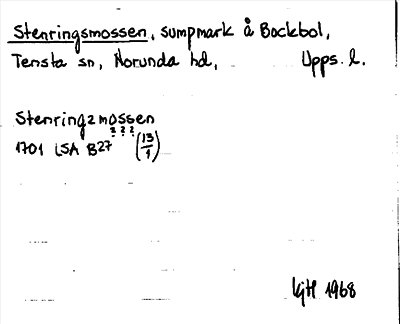 Stenringsmossen, sumpmark å Bockbol,
Tensta sn, Norunda hd, Upps. l.
Stenringzmossen
? ? ?
1701 LSA B27 (13/1)
KjH 1968